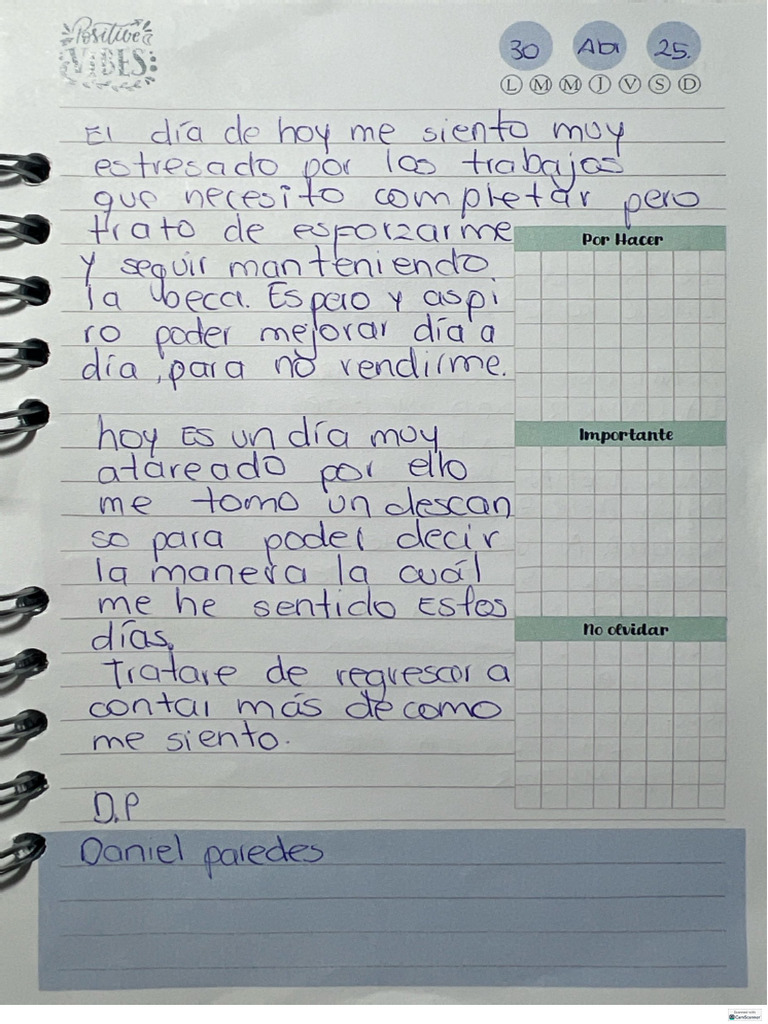 Positive
VIBES
30 Abr 25.
L M M J V S D
El día de hoy me siento muy
estresado por los trabajos
que necesito completar pero
trato de esforzarme
y seguir manteniendo
la beca. Espero y aspi
ro poder mejorar día a
día, para no rendirme.
Por Hacer
hoy Es un día muy
atareado por ello
me tomo un descan
so para poder decir
la manera la cuál
me he sentido Estos
días.
Tratare de regresar a
contar más de como
me siento.
Importante
No olvidar
D.P
Daniel paredes
CamScanner